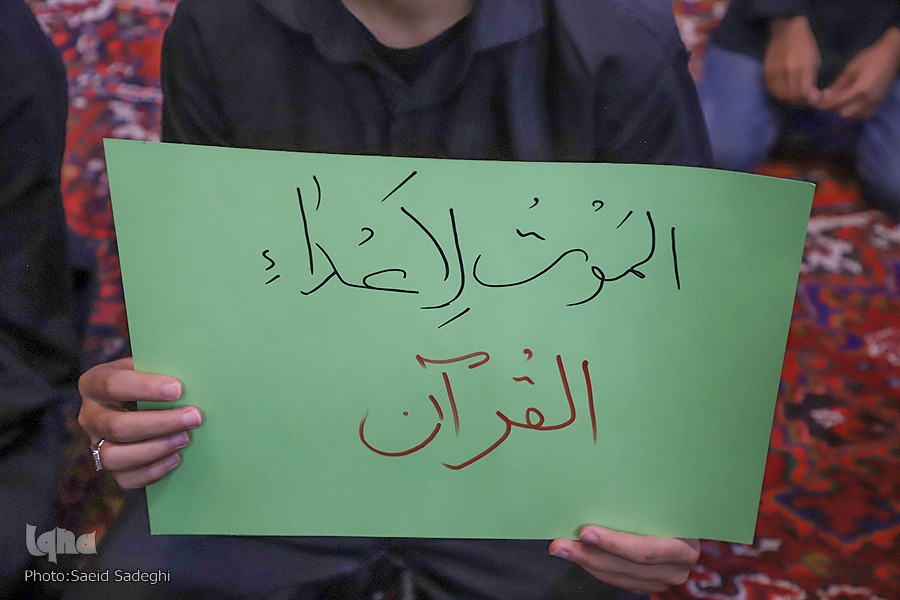 الْمَوْتُ لِاَعْدٰاءِ
الْقُرآن
Iqna
Photo:Saeid Sadeghi